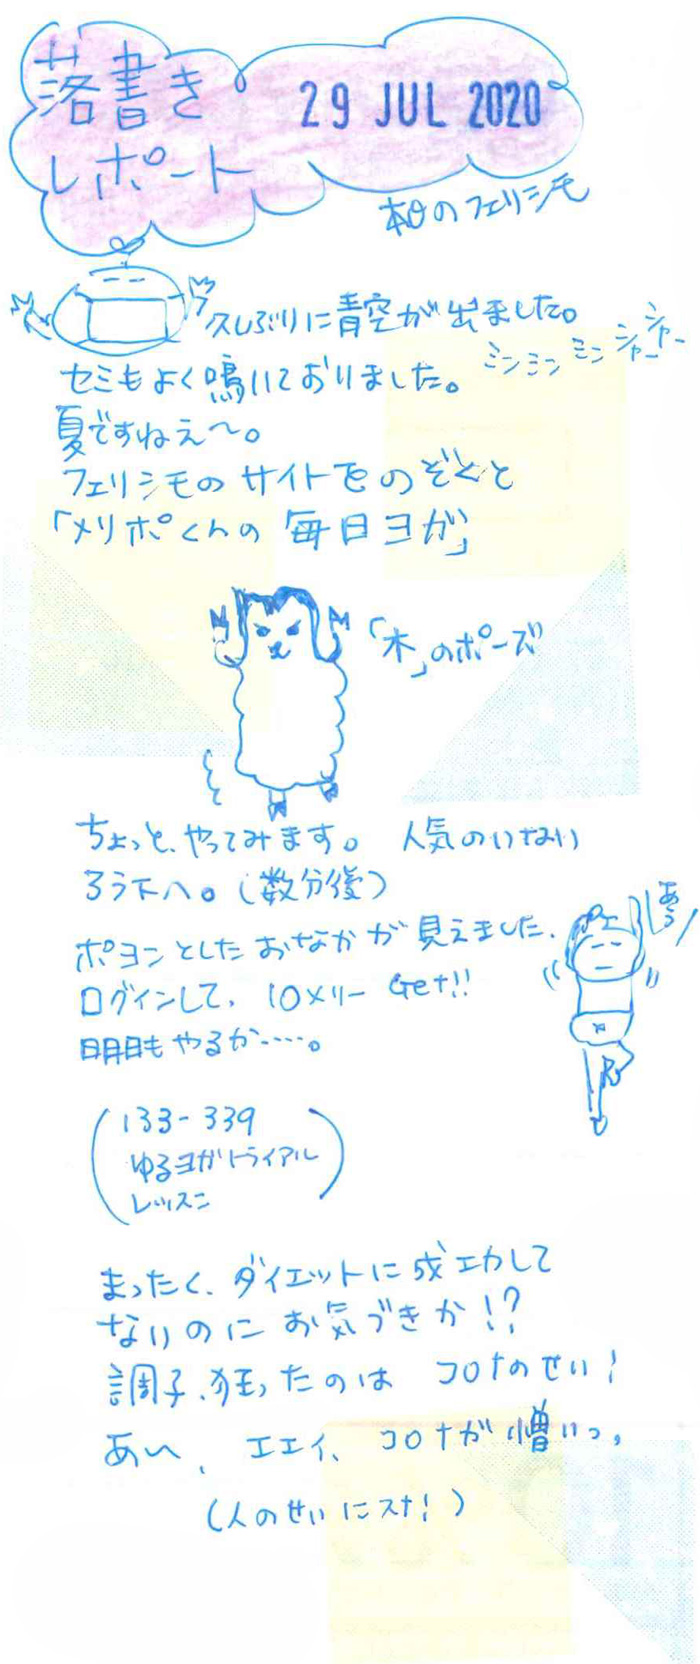 落書き
レポート
29 JUL 2020
本日のフェリシモ
久しぶりに青空が出ました。
ミンミンミンシャーシャー
セミもよく鳴いておりました。
夏ですねぇ〜。
フェリシモのサイトをのぞくと
「メリポくんの毎日ヨガ」
「木」のポーズ
ちょっと、やってみます。人気のいない
ろう下へ。(数分後)
ポヨンとしたおなかが見えました。
ログインして、10メリーGet!!
明日もやるか……。
(133-339
ゆるヨガトライアル
レッスン)
まったく、ダイエットに成功して
ないのにお気づきか!?
調子、狂ったのはコロナのせい!
あ〜、エエイ、コロナが憎いっ。
(人のせいにスナ!)